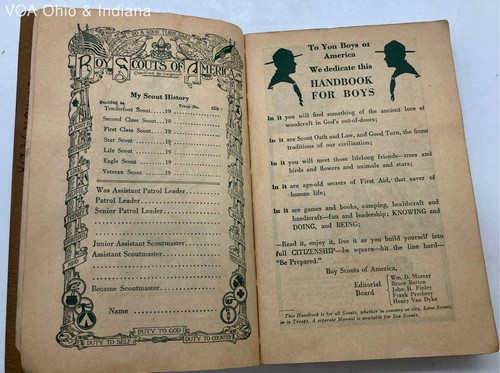 VOA Ohio & Indiana
DO A GOOD TURN DAILY
BOY SCOUTS OF AMERICA
My Scout History
Qualified as
Troop No.
City
Tenderfoot Scout 19
Second Class Scout 19
First Class Scout 19
Star Scout 19
Life Scout 19
Eagle Scout 19
Veteran Scout 19
Was Assistant Patrol Leader
Patrol Leader
Senior Patrol Leader
Junior Assistant Scoutmaster
Assistant Scoutmaster
Became Scoutmaster
Name
DUTY TO GOD
DUTY TO SELF
DUTY TO COUNTRY
To You Boys of
America
We dedicate this
HANDBOOK
FOR BOYS
In it you will find something of the ancient lore of
woodcraft in God's out-of-doors;
In it are Scout Oath and Law, and Good Turn, the finest
traditions of our civilization;
In it you will meet those lifelong friends—trees and
birds and flowers and animals and stars;
In it are age-old secrets of First Aid, that saver of
human life;
In it are games and books, camping, healthcraft and
handicraft—fun and leadership; KNOWING and
DOING, and BEING;
—Read it, enjoy it, live it as you build yourself into
full CITIZENSHIP—be square—hit the line hard—
"Be Prepared."
Boy Scouts of America,
Editorial
Board
Wm. D. Murray
Bruce Barton
John H. Finley
Frank Presbrey
Henry Van Dyke
This Handbook is for all Scouts, whether in country or city, Lone Scouts,
or in Troops. A separate Manual is available for Sea Scouts.